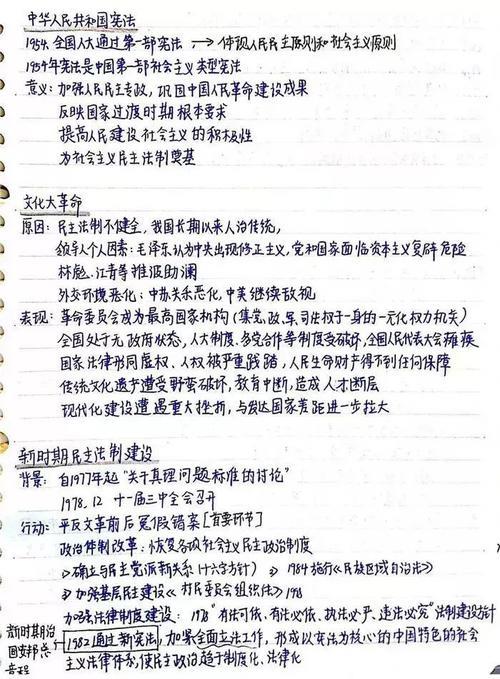 中华人民共和国宪法
1954.全国人大通过第一部宪法 → 体现人民民主原则和社会主义原则
1954年宪法是中国第一部社会主义类型宪法
意义：加强人民民主专政，巩固中国人民革命建设成果
反映国家过渡时期根本要求
提高人民建设社会主义的积极性
为社会主义民主法制奠基
文化大革命
原因：民主法制不健全，我国长期以来人治传统，
领导人个人因素：毛泽东认为中央出现修正主义，党和国家面临资本主义复辟危险
林彪、江青等推波助澜
外交环境恶化：中苏关系恶化，中美继续敌视
表现：革命委员会成为最高国家机构（集党、政、军、司法权于一身的一元化权力机关）
全国处于无政府状态，人大制度、多党合作等制度受破坏，全国人民代表大会瘫痪
国家法律形同虚权、人权被严重践踏，人民生命财产得不到任何保障
传统文化遗产遭受野蛮破坏，教育中断，造成人才断层
现代化建设遭遇重大挫折，与发达国家差距进一步拉大
新时期民主法制建设
背景：自1977年起“关于真理问题标准的讨论”
1978.12 十一届三中全会召开
行动：平反文革前后冤假错案［首要环节］
政治体制改革：恢复各项社会主义民主政治制度
⇒确立与民主党派新关系（十六字方针） ⇒ 1984施行《民族区域自治法》
⇒加强基层民主建设《村民委员会组织法》198
加强法律制度建设：1978“有法可依、有法必依、执法必严、违法必究”法制建设方针
新时期治国安邦总章程 1982通过新宪法，加紧全面立法工作，形成以宪法为核心的中国特色的社会
主义法律体系，使民主政治趋于制度化、法律化